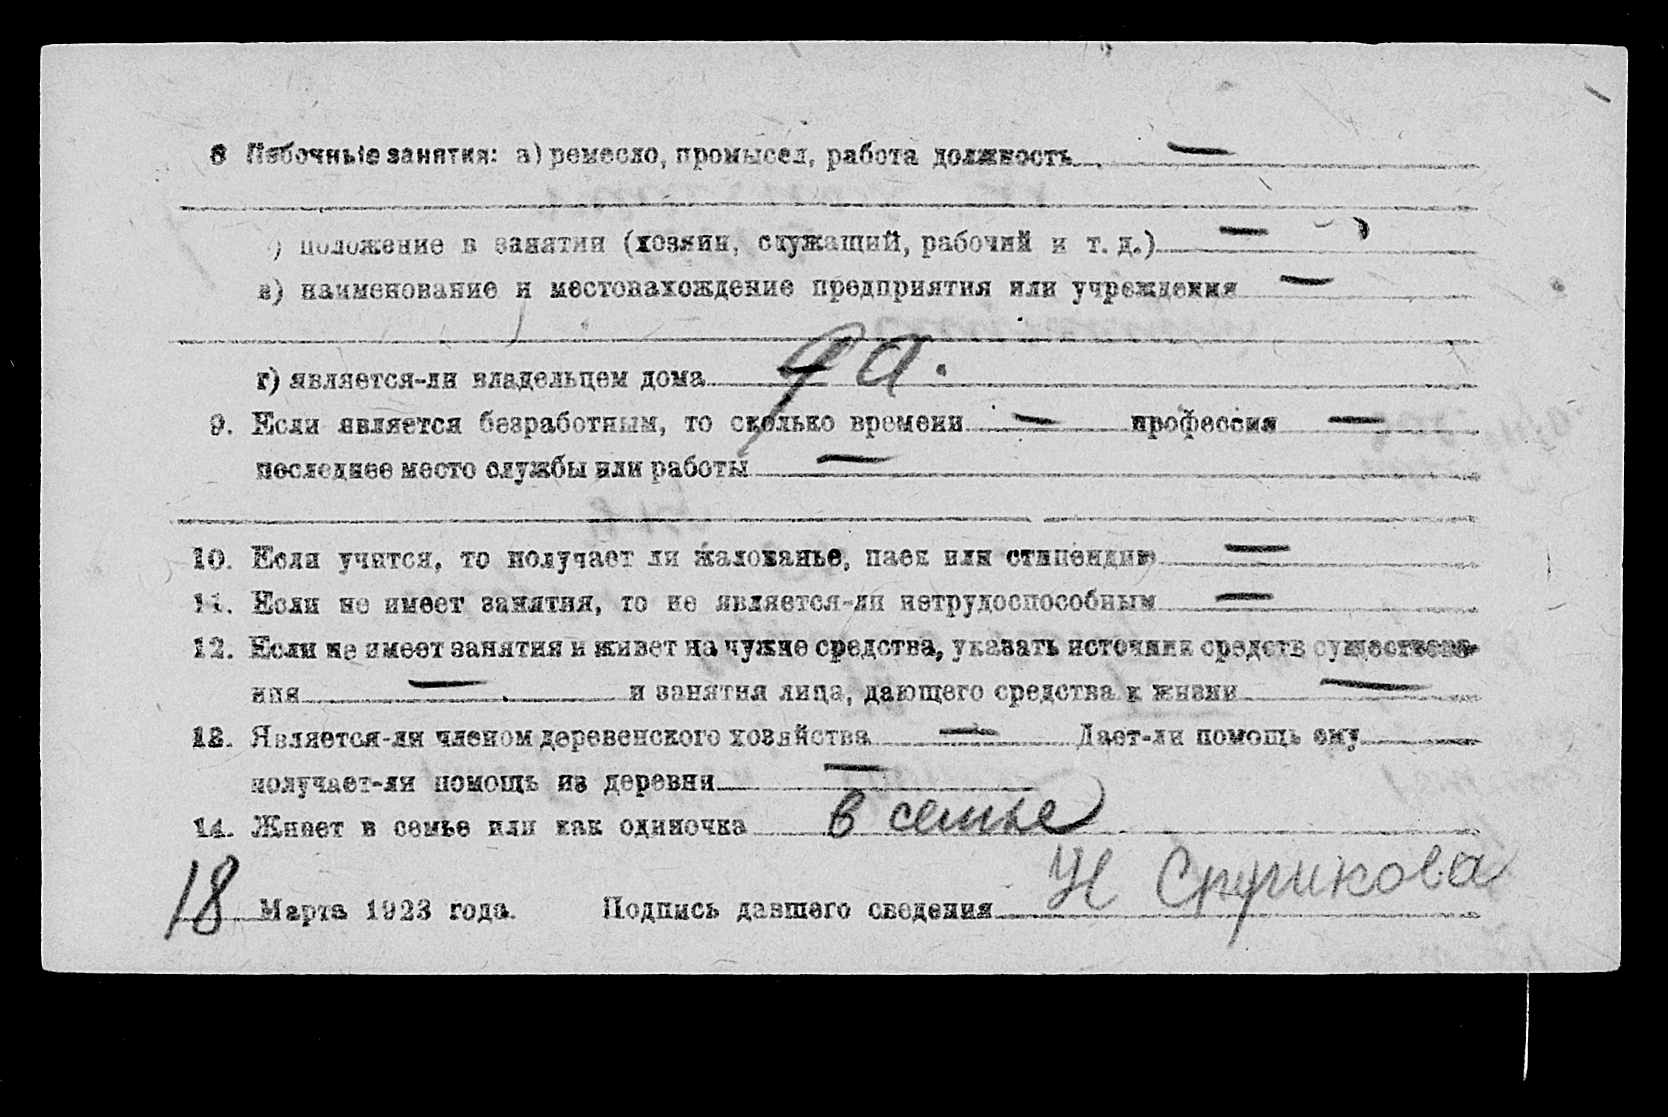 8 Побочные занятия: а) ремесло, промысел, работа должность —
) положение в занятии (хозяин, служащий, рабочий и т. д.) —
в) наименование и местонахождение предприятия или учреждения —
г) является-ли владельцем дома да.
9. Если является безработным, то сколько времени — профессия —
последнее место службы или работы —
10. Если учится, то получает ли жалованье, паек или стипендию —
11. Если не имеет занятия, то не является-ли нетрудоспособным —
12. Если не имеет занятия и живет на чужие средства, указать источник средств существова-
ния — и занятия лица, дающего средства к жизни —
13. Является-ли членом деревенского хозяйства — Дает-ли помощь ему
получает-ли помощь из деревни —
14. Живет в семье или как одиночка в семье
18 Марта 1923 года. Подпись давшего сведения Н